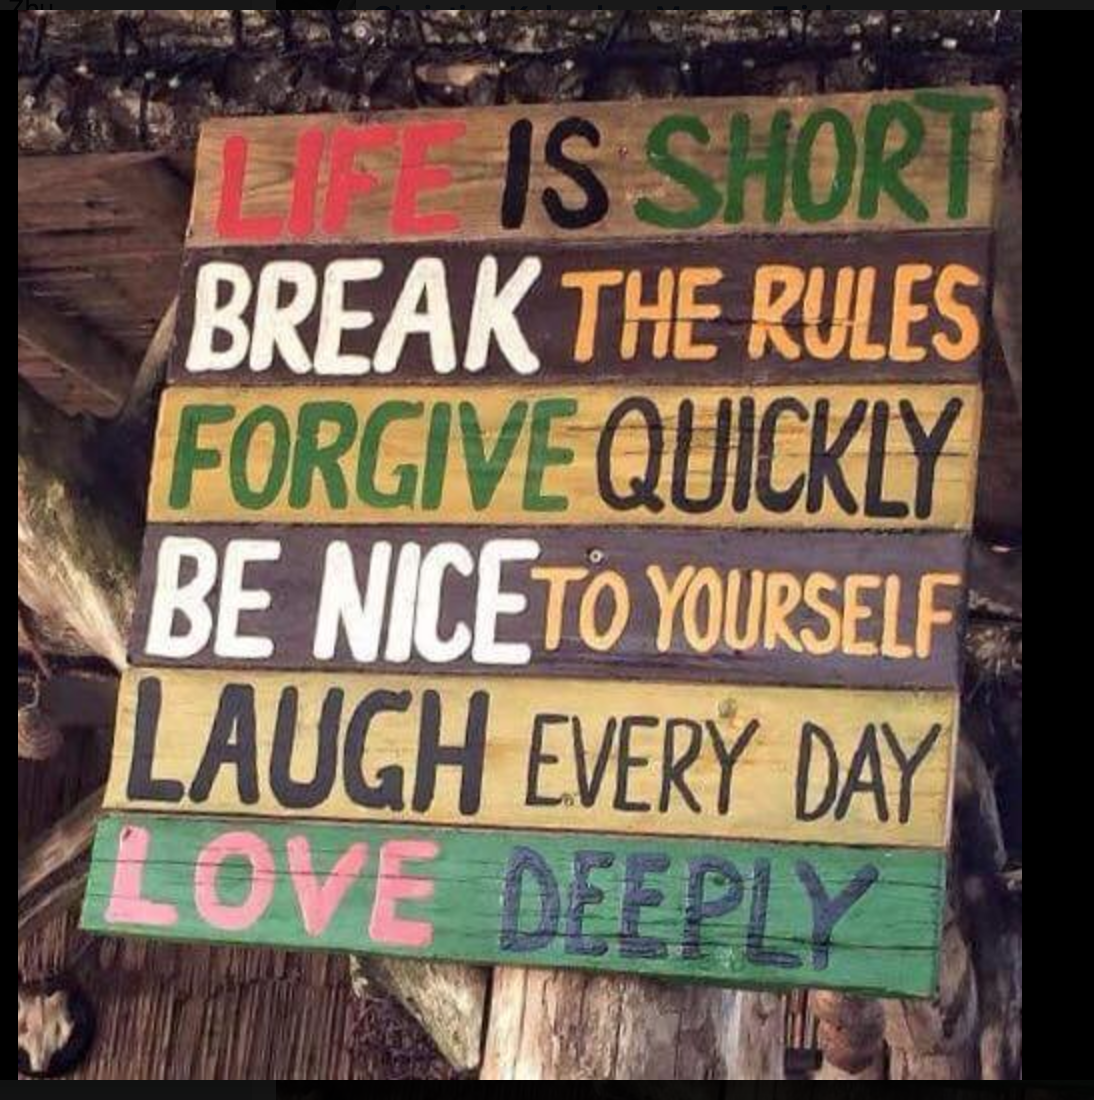 LIFE IS SHORT
BREAK THE RULES
FORGIVE QUICKLY
BE NICE TO YOURSELF
LAUGH EVERY DAY
LOVE DEEPLY